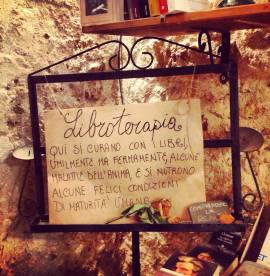 Libroterapia
QUI SI CURANO CON I LIBRI,
UMILMENTE MA FERMAMENTE, ALCUNE
MALATTIE DELL'ANIMA, E SI NUTRONO
ALCUNE FELICI CONDIZIONI
DI MATURITÀ UMANA